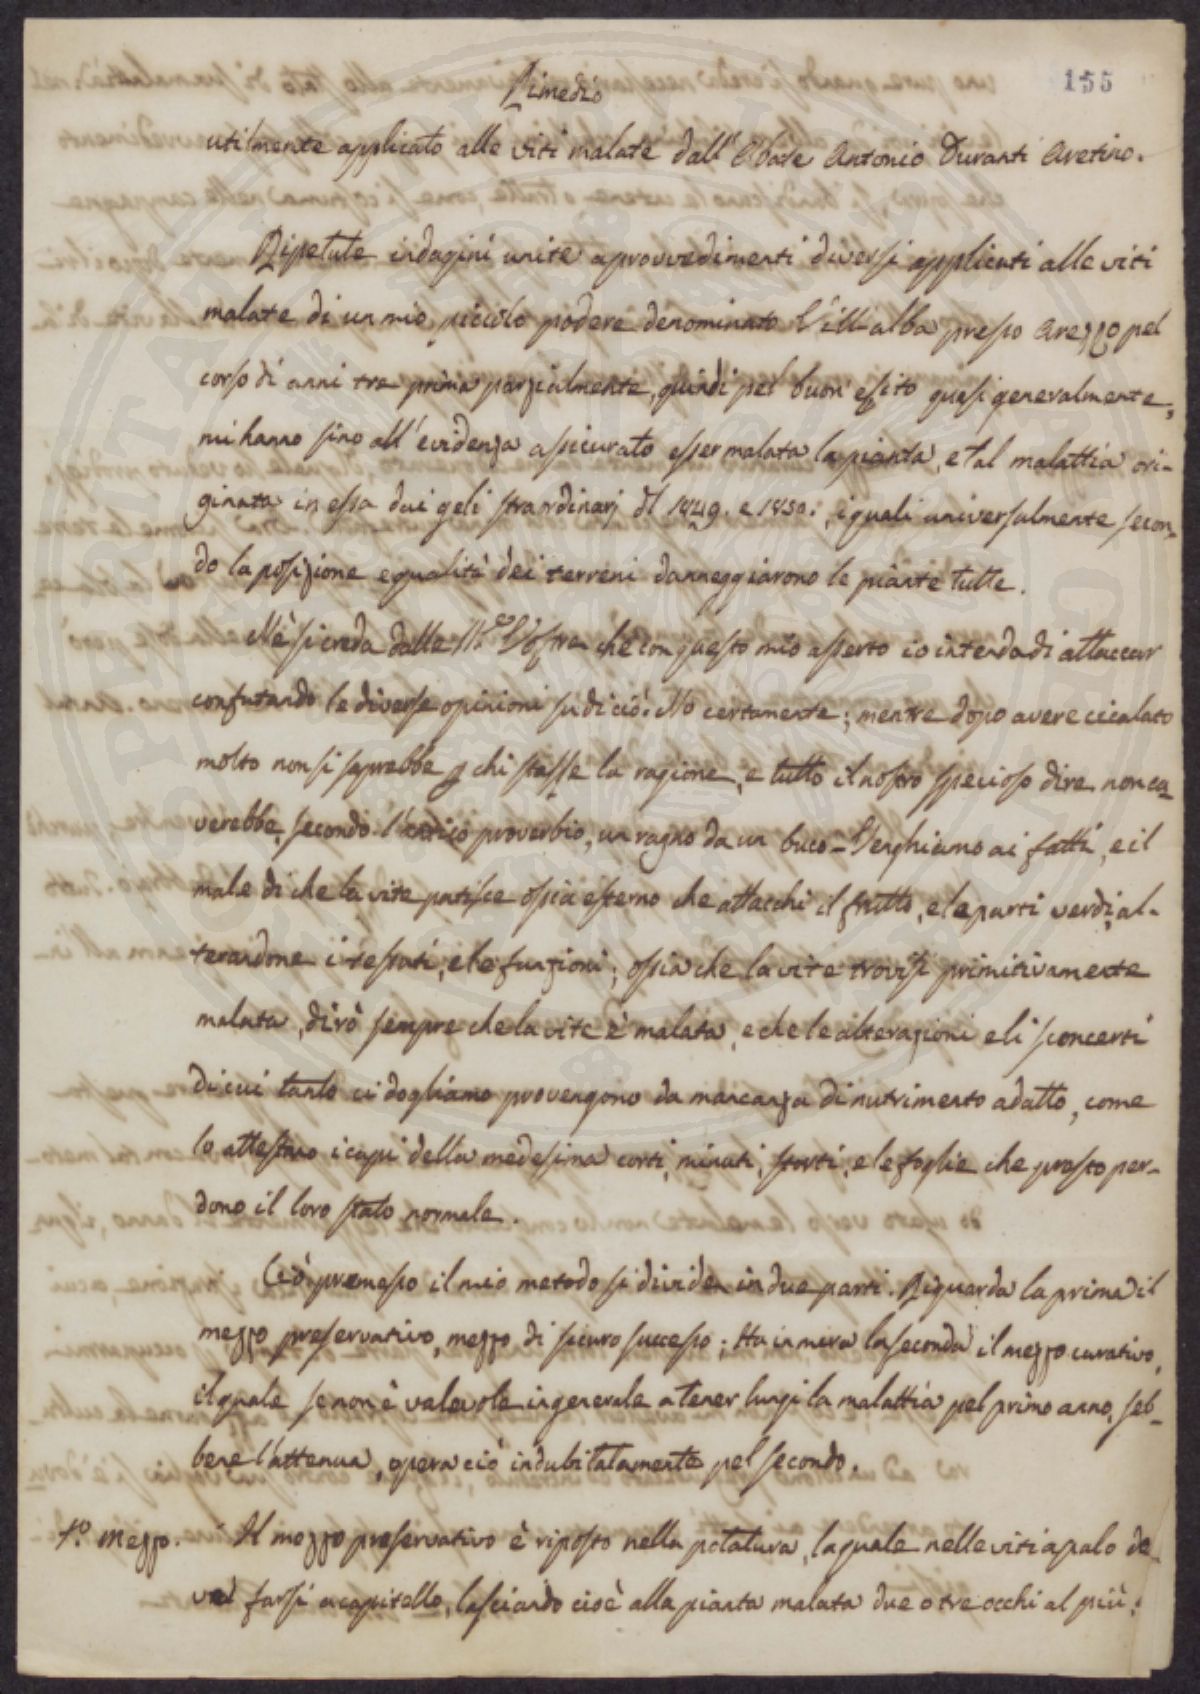 155
Rimedio
utilmente applicato alle viti malate dall'Abate Antonio Duranti Aretino.
Ripetute indagini unite a provvedimenti diversi applicati alle viti
malate di un mio piccolo podere denominato Vill'alba presso Arezzo pel
corso di anni tre prima parzialmente, quindi pel buon esito quasi generalmente,
mi hanno sino all'evidenza assicurato esser malata la pianta, e tal malattia ori-
ginata in essa dai geli straordinarj dl 1849. e 1850., i quali universalmente secon-
do la posizione e qualità dei terreni danneggiarono le piante tutte.
Nè si creda dalle Vostre che con questo mio asserto io intenda di attaccar
confutando le diverse opinioni su di ciò: No certamente; mentre dopo avere cicalato
molto non si saprebbe p chi stasse la ragione, e tutto il nostro specioso dire non ca-
verebbe, secondo l'antico proverbio, un ragno da un buco - Venghiamo ai fatti, e il
male di che la vite patisce ossia esterno che attacchi il frutto, e le parti verdi, al-
terandone i tessuti, e le funzioni; ossia che la vite trovisi primitivamente
malata, dirò sempre che la vite è malata, e che le alterazioni e li sconcerti
di cui tanto ci dogliamo provengono da mancanza di nutrimento adatto, come
lo attestano i capi della medesima corti, minuti, storti, e le foglie che presto per-
dono il loro stato normale.
Ciò premesso il mio metodo si divide in due parti. Riguarda la prima il
mezzo preservativo, mezzo di sicuro successo; Ha in mira la seconda il mezzo curativo,
il quale se non è valevole in generale a tener lungi la malattia pel primo anno, seb-
bene l'attenua, opera ciò indubitatamente pel secondo.
1.º Mezzo. Il mezzo preservativo è riposto nella potatura, la quale nelle viti a palo de-
ve farsi a capitello, lasciando cioè alla pianta malata due o tre occhi al più;